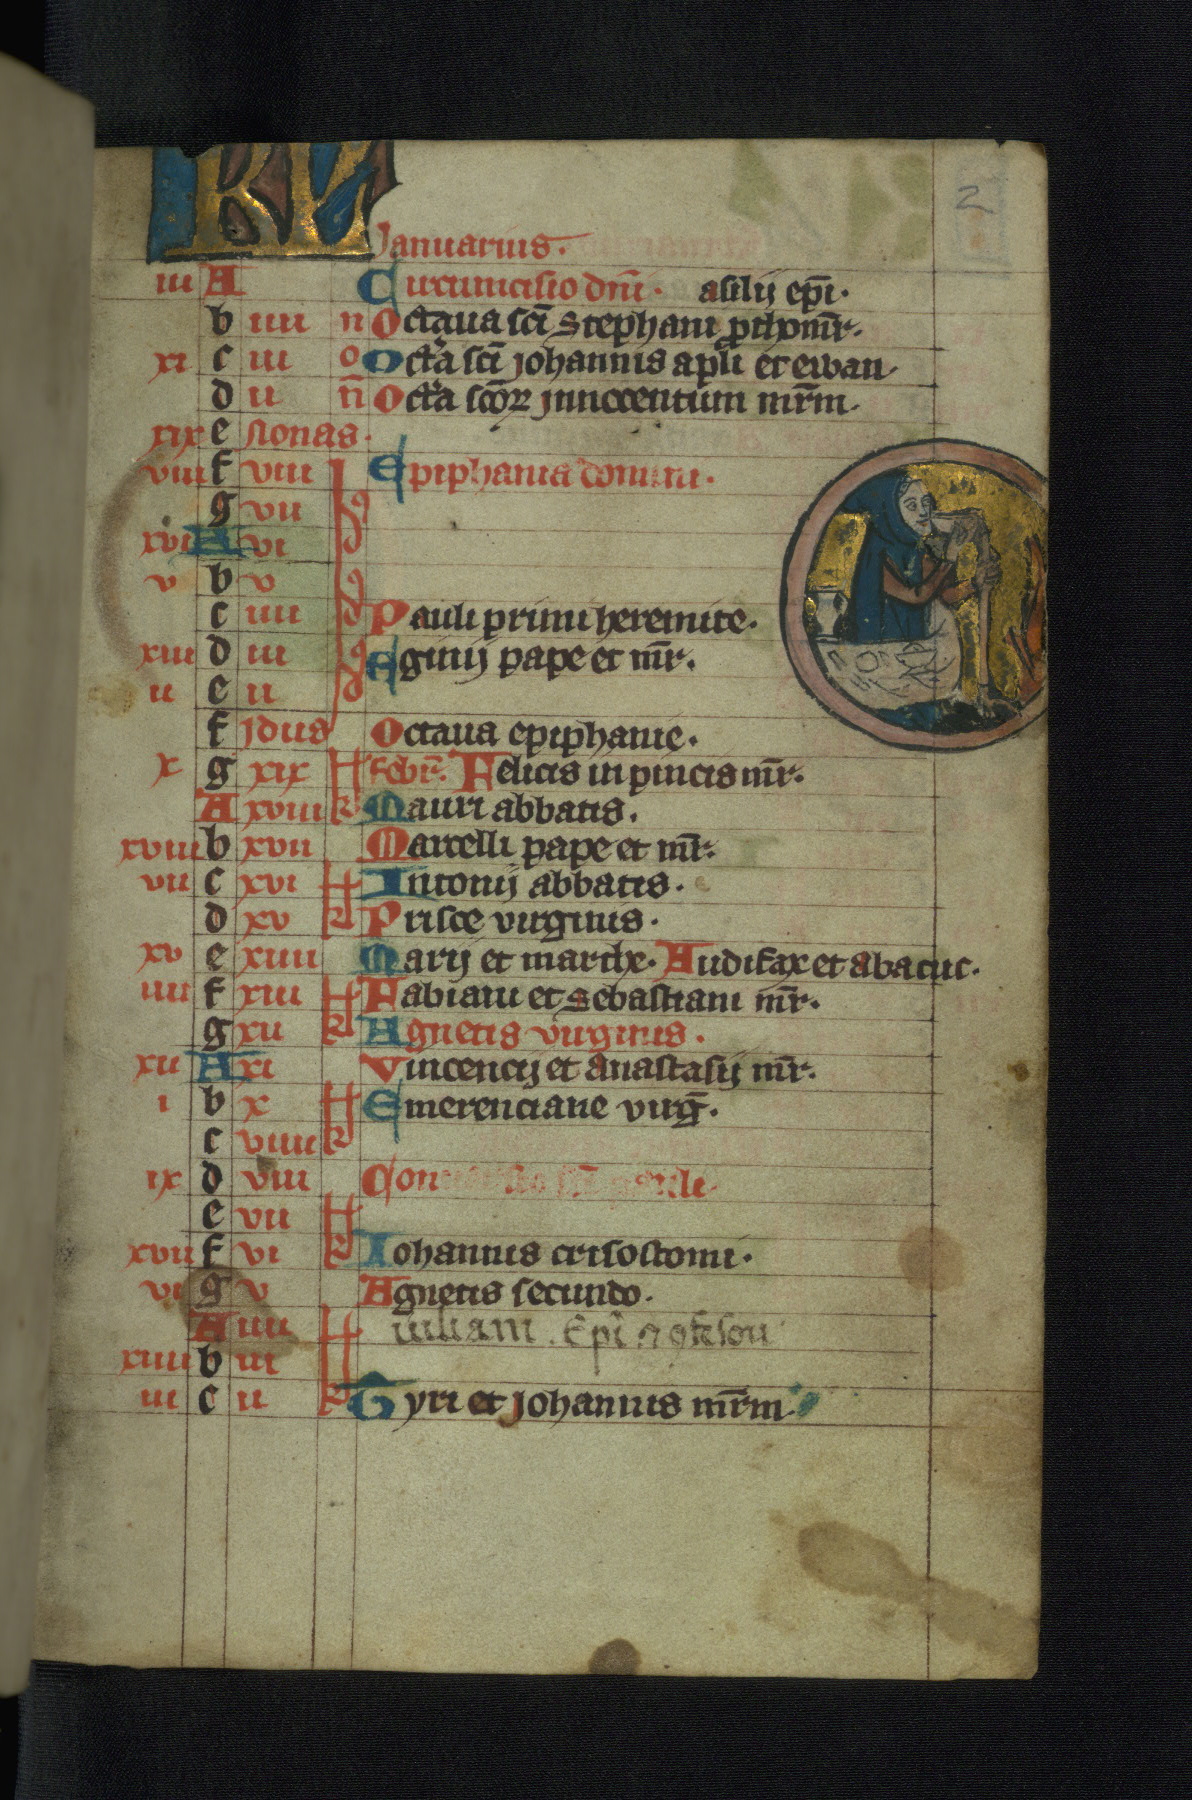 2
KL
Januarius.
iii A Circumcisio dn̄i. asilij ep̄i.
b iiii n Octaua sc̄i Stephani prothom̄r.
xi c iii o Octa sc̄i johannis apl̄i et ewan.
d ii n̄ Octa sc̄oꝝ jnnocentum m̄rm.
xix e Nonas.
viii f viii Epiphania domini.
g vii
xvi A vi
v b v
c iiii Pauli primi heremite.
xiii d iii Eginij pape et m̄r.
ii e ii
f jdus Octaua epiphanie.
x g xix febr̄. Felicis in pincis m̄r.
A xviii kl Mauri abbatis.
xviii b xvii Marcelli pape et m̄r.
vii c xvi Antonij abbatis.
d xv kl Prisce virginis.
xv e xiiii Marij et marthe. Audifax et abacuc.
iiii f xiii Fabiani et Sebastiani m̄r.
g xii kl Agnetis virginis.
xii A xi Vincencij et anastasij m̄r.
i b x Emerenciane virḡ.
c viiii kl
ix d viii Conuersio sc̄i pauli.
e vii
xvii f vi kl Iohannis crisostomi.
vi g v Agnetis secundo.
A iiii iuliani. Epi ⁊ ꝯfessou
xiiii b iii
iii c ii kl Cyri et johannis m̄rm.